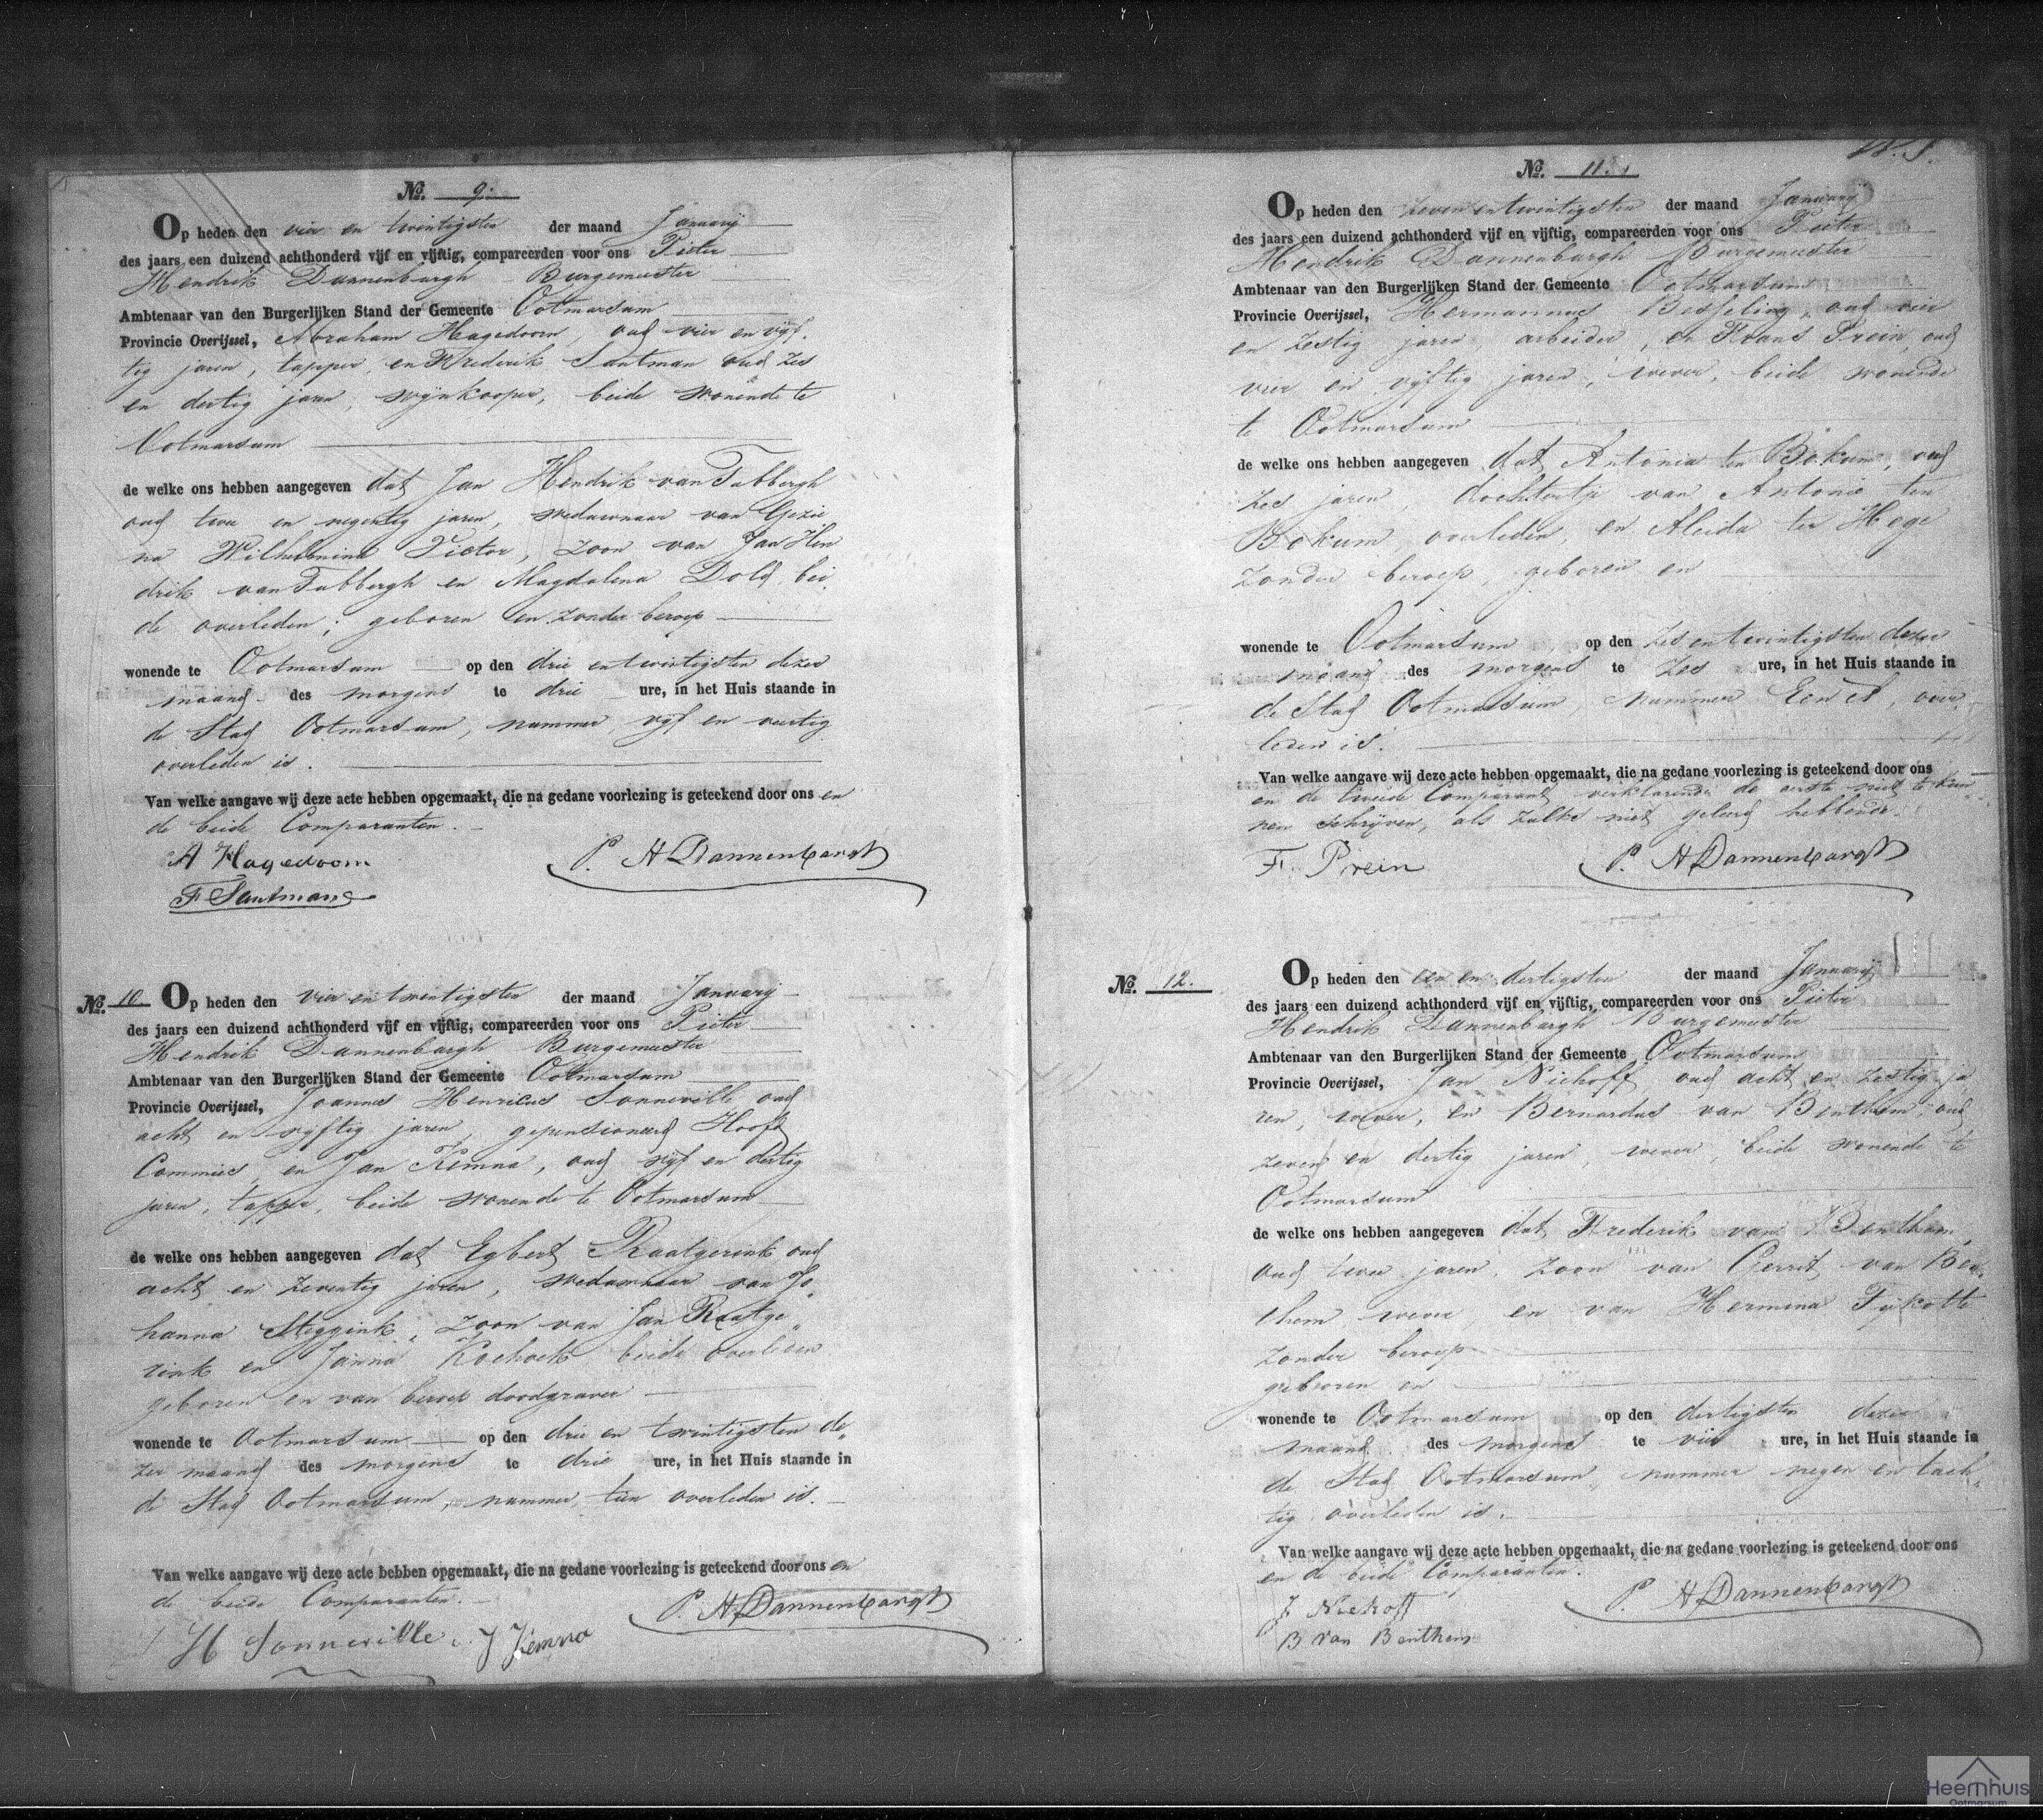 No. 9.
Op heden den vier en twintigsten der maand Januarij
des jaars een duizend achthonderd vijf en vijftig, compareerden voor ons Pieter
Hendrik Dannenbargh Burgemeester
Ambtenaar van den Burgerlijken Stand der Gemeente Ootmarsum
Provincie Overijssel, Abraham Hagedoorn, oud vier en vijf
tig jaren, tapper, en Frederik Santman oud zes
en dertig jaren, wijnkooper, beide wonende te
Ootmarsum
de welke ons hebben aangegeven dat Jan Hendrik van Tubbergh
oud twee en negentig jaren, weduwnaar van Gezie
na Wilhelmina Pictor, zoon van Jan Hen
drik van Tubbergh en Magdalena Dold, bei
de overleden; geboren en zonder beroep
wonende te Ootmarsum op den drie en twintigsten dezer
maand des morgens te drie ure, in het Huis staande in
de Stad Ootmarsum, nummer, vijf en veertig
overleden is.
Van welke aangave wij deze acte hebben opgemaakt, die na gedane voorlezing is geteekend door ons en
de beide Comparanten.
A Hagedoorn P. H Dannenbargh
F Santman
No. 10 Op heden den vier en twintigsten der maand Januarij
des jaars een duizend achthonderd vijf en vijftig, compareerden voor ons Pieter
Hendrik Dannenbargh Burgemeester
Ambtenaar van den Burgerlijken Stand der Gemeente Ootmarsum
Provincie Overijssel, Joannes Henricus Sonneville oud
acht en vijftig jaren, gepensioneerd Hoofd
Commies, en Jan Kemna, oud vijf en dertig
jaren, tapper, beide wonende te Ootmarsum
de welke ons hebben aangegeven dat Egbert Raatgerink oud
acht en zeventig jaren, weduwnaar van Jo
hanna Steggink, zoon van Jan Raatge
rink en Janna beide overleden
geboren en van beroep doodgraver
wonende te Ootmarsum op den drie en twintigsten de
zer maand des morgens te drie ure, in het Huis staande in
de Stad Ootmarsum, nummer, tien overleden is.
Van welke aangave wij deze acte hebben opgemaakt, die na gedane voorlezing is geteekend door ons en
de beide Comparanten. P. H Dannenbargh
J H Sonneville J Kemna
No. 11.
Op heden den zeven en twintigsten der maand Januarij
des jaars een duizend achthonderd vijf en vijftig, compareerden voor ons Pieter
Hendrik Dannenbargh Burgemeester
Ambtenaar van den Burgerlijken Stand der Gemeente Ootmarsum
Provincie Overijssel, Hermannus Besseling, oud vier
en zestig jaren, arbeider, en Frans Prein, oud
vier en vijftig jaren, wever, beide wonende
te Ootmarsum
de welke ons hebben aangegeven dat Antonia ten Bokum, oud
zes jaren, dochtertje van Antonie ten
Bokum, overleden, en Aleida ter Hege
zonder beroep, geboren en
wonende te Ootmarsum op den zes en twintigsten dezer
maand des morgens te zes ure, in het Huis staande in
de Stad Ootmarsum, nummer Een A, over
leden is.
Van welke aangave wij deze acte hebben opgemaakt, die na gedane voorlezing is geteekend door ons
en de tweede Comparant verklarende de eerste niet te kun
nen schrijven, als zulks niet geleerd hebbende.
F. Prein P. H Dannenbargh
No. 12. Op heden den een en dertigsten der maand Januarij
des jaars een duizend achthonderd vijf en vijftig, compareerden voor ons Pieter
Hendrik Dannenbargh Burgemeester
Ambtenaar van den Burgerlijken Stand der Gemeente Ootmarsum
Provincie Overijssel, Jan Niehoff oud acht en zestig ja
ren, wever, en Bernardus van Benthem, oud
zeven en dertig jaren, wever, beide wonende te
Ootmarsum
de welke ons hebben aangegeven dat Frederik van Benthem
oud twee jaren, zoon van Gerrit van Ben
them wever, en van Hermina Tijkotte
zonder beroep
geboren en
wonende te Ootmarsum op den dertigsten dezer
maand des morgens te vier ure, in het Huis staande in
de Stad Ootmarsum, nummer negen en tach
tig overleden is.
Van welke aangave wij deze acte hebben opgemaakt, die na gedane voorlezing is geteekend door ons
en de beide Comparanten.
J Niehoff P. H Dannenbargh
B van Benthem
Heemhuis
Ootmarsum